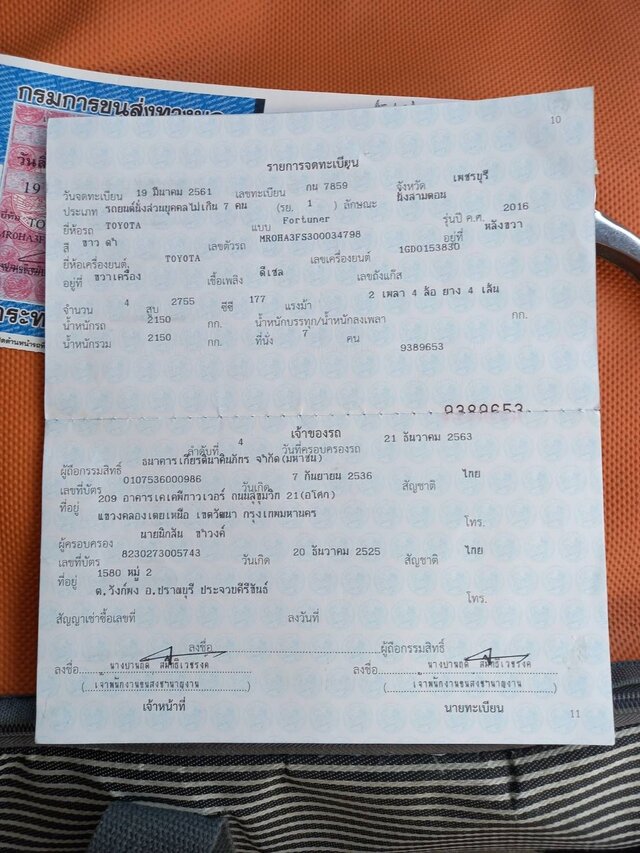 กรมการขนส่งทางบก
วันสิ้
19
TO
MR0HA3FS
10
รายการจดทะเบียน
วันจดทะเบียน 19 มีนาคม 2561 เลขทะเบียน กน 7859 จังหวัด เพชรบุรี
ประเภท รถยนต์นั่งส่วนบุคคลไม่เกิน 7 คน (รย. 1 ) ลักษณะ นั่งสามตอน
ยี่ห้อรถ TOYOTA แบบ Fortuner รุ่นปี ค.ศ. 2016
สี ขาว ดำ เลขตัวรถ MR0HA3FS300034798 อยู่ที่ หลังขวา
ยี่ห้อเครื่องยนต์ TOYOTA เลขเครื่องยนต์ 1GD0153830
อยู่ที่ ขวาเครื่อง เชื้อเพลิง ดีเซล เลขถังแก๊ส
จำนวน 4 สูบ 2755 ซีซี 177 แรงม้า 2 เพลา 4 ล้อ ยาง 4 เส้น
น้ำหนักรถ 2150 กก. น้ำหนักบรรทุก/น้ำหนักลงเพลา กก.
น้ำหนักรวม 2150 กก. ที่นั่ง 7 คน
9389653
9389653
เจ้าของรถ
ลำดับที่ 4 วันที่ครอบครองรถ 21 ธันวาคม 2563
ผู้ถือกรรมสิทธิ์ ธนาคารเกียรตินาคินภัทร จำกัด(มหาชน)
เลขที่บัตร 0107536000986 วันเกิด 7 กันยายน 2536 สัญชาติ ไทย
ที่อยู่ 209 อาคารเคเคพีทาวเวอร์ ถนนสุขุมวิท 21(อโศก)
แขวงคลองเตยเหนือ เขตวัฒนา กรุงเทพมหานคร โทร.
ผู้ครอบครอง นายนิกสัน ชาวงค์
เลขที่บัตร 8230273005743 วันเกิด 20 ธันวาคม 2525 สัญชาติ ไทย
ที่อยู่ 1580 หมู่ 2
ต.วังก์พง อ.ปราณบุรี ประจวบคีรีขันธ์ โทร.
สัญญาเช่าซื้อเลขที่ ลงวันที่
ลงชื่อ ผู้ถือกรรมสิทธิ์
ลงชื่อ ลงชื่อ
(เจ้าพนักงานขนส่งชำนาญงาน) (เจ้าพนักงานขนส่งชำนาญงาน)
เจ้าหน้าที่ นายทะเบียน
11